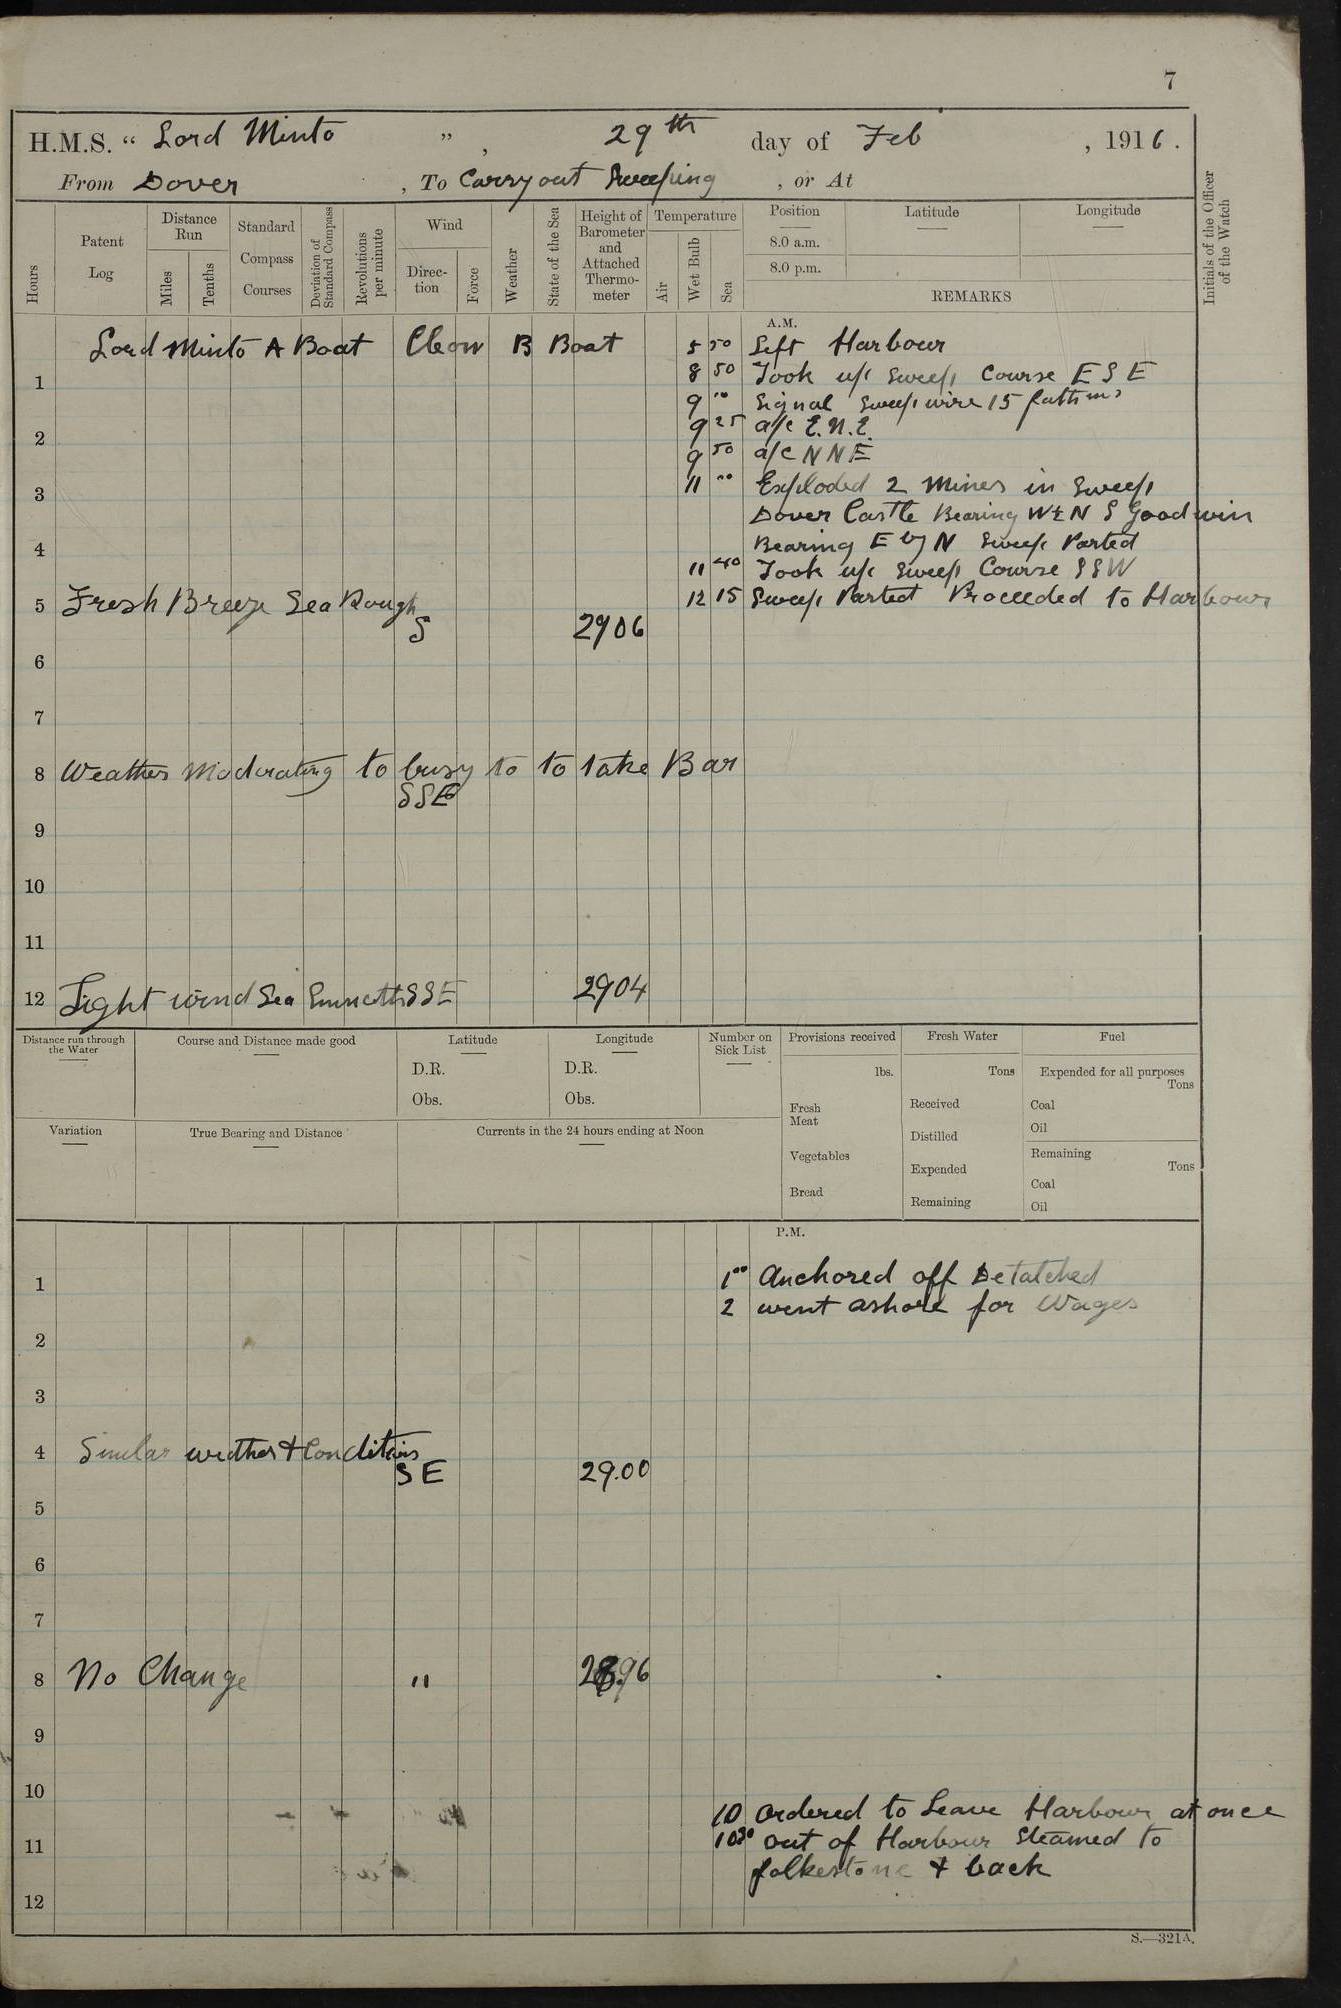 7
H.M.S. “ Lord Minto ” , 29th day of Feb , 1916 .
From Dover , To Carry out Sweeping , or At
Hours
Patent Log
Distance Run
Miles
Tenths
Standard Compass Courses
Deviation of Standard Compass
Revolutions per minute
Wind
Direc-tion
Force
Weather
State of the Sea
Height of Barometer and Attached Thermo-meter
Temperature
Air
Wet Bulb
Sea
Position
Latitude
Longitude
8.0 a.m.
8.0 p.m.
REMARKS
Initials of the Officer of the Watch
A.M.
Lord Minto A Boat B Boat 5 50 Left Harbour
8 50 Took up Sweep Course E S E
1
9 00 Signal Sweep wire 15 fathms
9 25 a/c E.N.E.
2
9 50 a/c NNE
11 00 Exploded 2 Mines in Sweep
3
Dover Castle Bearing W½N S Goodwin
Bearing E by N Sweep Parted
4
11 40 Took up Sweep Course SSW
5 Fresh Breeze Sea Rough 12 15 Sweep Parted Proceeded to Harbour
S 2906
6
7
8 Weather Moderating to busy to to take Bar
SSE
9
10
11
12 Light wind Sea Smooth SSE 2904
Distance run through the Water
Course and Distance made good
Latitude
D.R.
Obs.
Longitude
D.R.
Obs.
Number on Sick List
Provisions received
lbs.
Fresh Meat
Vegetables
Bread
Fresh Water
Tons
Received
Distilled
Expended
Remaining
Fuel
Expended for all purposes
Tons
Coal
Oil
Remaining
Tons
Coal
Oil
Variation
True Bearing and Distance
Currents in the 24 hours ending at Noon
P.M.
1 1 00 Anchored off Detatched
2 went ashore for Wages
2
3
4 Similar wether & Conditions
SE 29.00
5
6
7
8 No Change " 28.96
9
10
10 Ordered to Leave Harbour at once
11 10 30 out of Harbour Steamed to
folkestone & back
12
S.—321A.